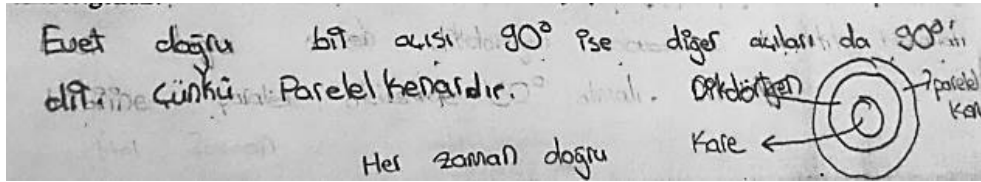 Evet doğru bir açısı 90° ise diğer açıları da 90°
dir. Çünkü Parelelkenardır.
Dikdörtgen
parelel
Ken
Kare
Her zaman doğru